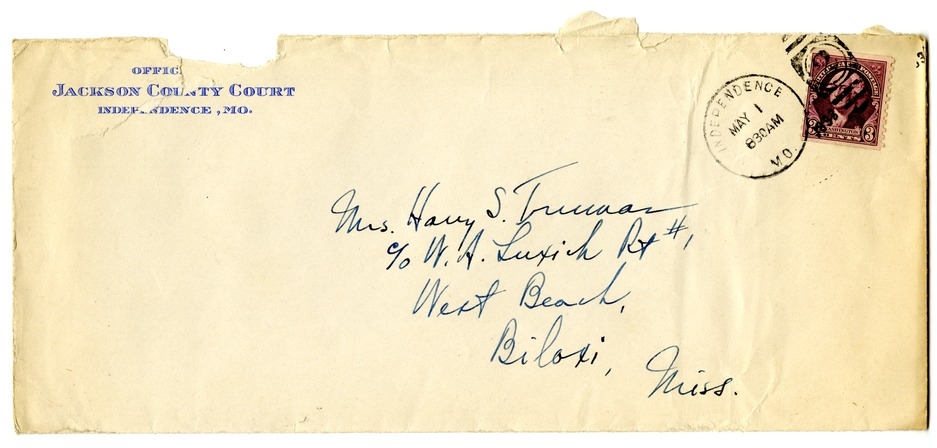 OFFIC
JACKSON COUNTY COURT
INDEPENDENCE, MO.
INDEPENDENCE
MAY 1
830AM
MO.
WASHINGTON
3 CENTS 3
Mrs. Harry S. Truman
c/o W. A. Luxich Rt #1
West Beach,
Biloxi, Miss.